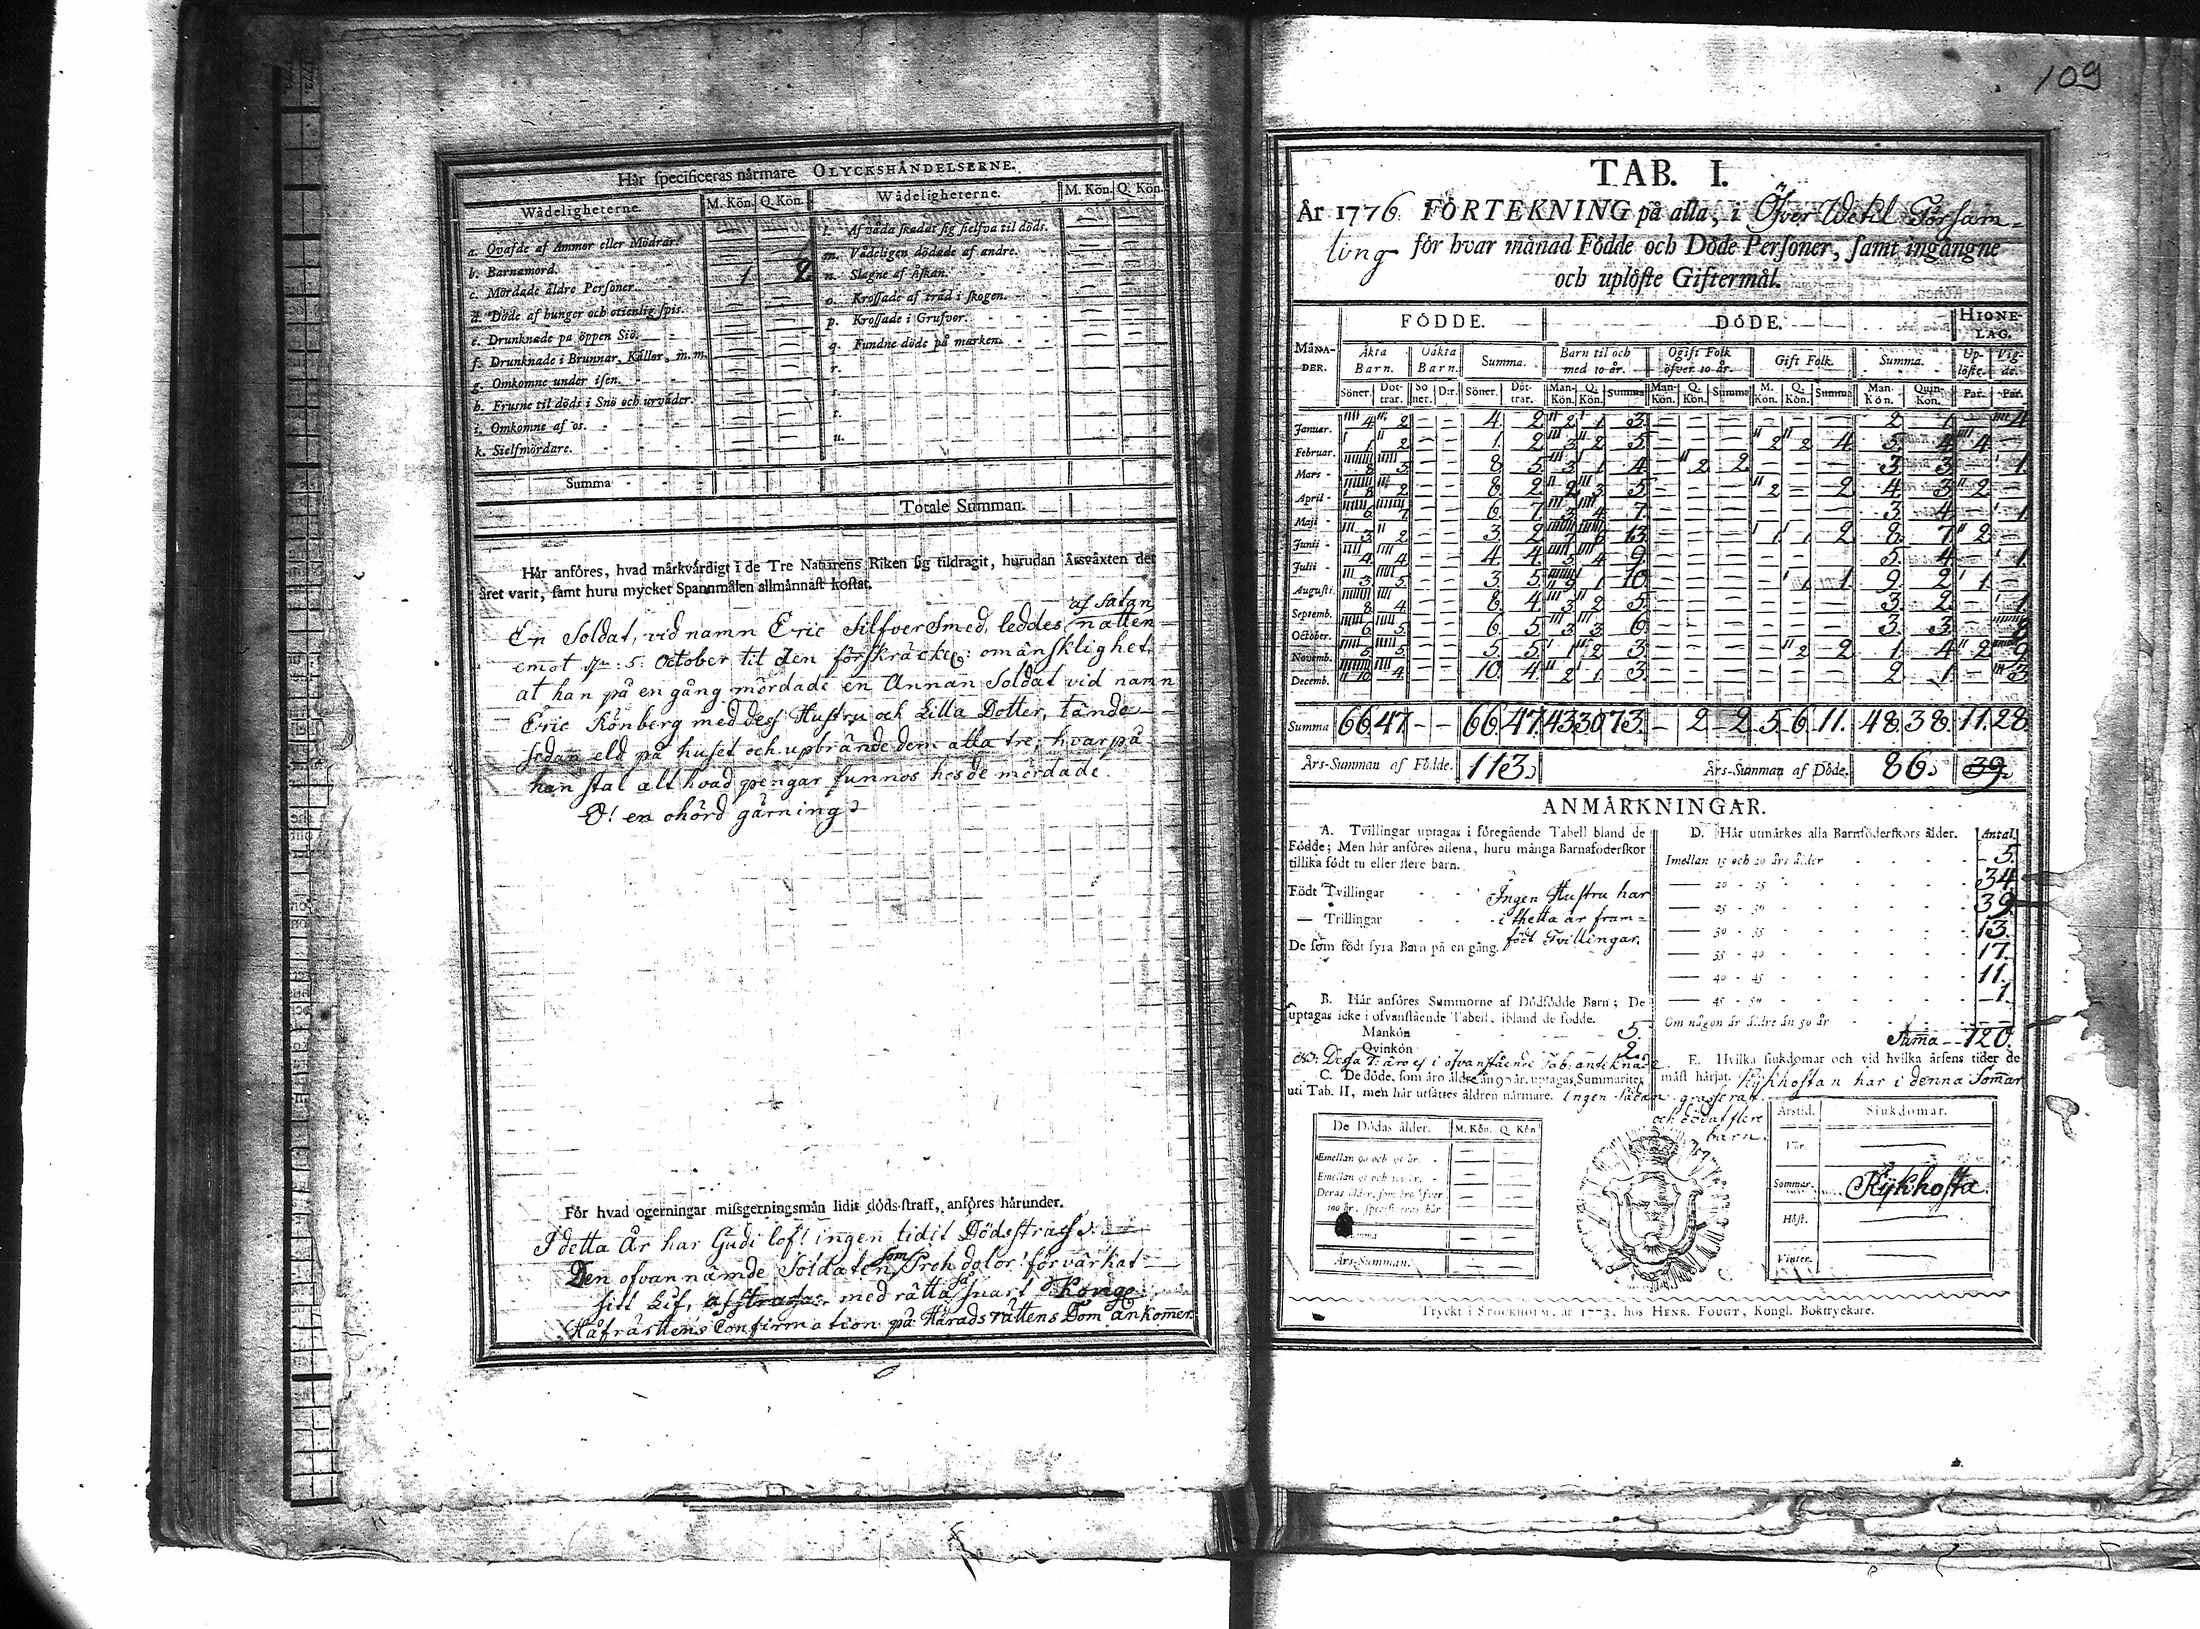 Hår specificeras nårmare OLYCKSHÅNDELSERNE.
Wådeligheterne. M. Kön. Q. Kön. Wådeligheterne. M. Kön. Q. Kön.
a. Qvafde af Ammor eller Mödrar. — — l. Af våda skadat sig sielfva til döds. — —
b. Barnamord. — — m. Vådeligen dödade af andre. — —
c. Mördade åldre Personer. 1 2 n. Slagne af Åskan. — —
d. Döde af hunger och otienlig spis. — — o. Krossade af tråd i skogen. — —
e. Drunknade på öppen Siö. — — p. Krossade i Grufvor. — —
f. Drunknade i Brunnar, Kållor, m. m. — — q. Fundne döde på marken. — —
g. Omkomne under isen. — — r.
h. Frusne til döds i Snö och urvåder. — — s.
i. Omkomne af os. — — t.
k. Sielfmördare. — — u.
Summa
Totale Summan.
Hår anföres, hvad mårkvårdigt i de Tre Naturens Riken sig tildragit, hurudan Årsvåxten det
året varit, samt huru mycket Spannmålen allmånnast kostat.
af Satan
En Soldat, vid namn Eric Silfversmed, leddes natten
emot d. 5. October til den förskräckel: omänsklighet
at han på en gång mördade en Annan Soldat vid namn
Eric Rönberg med dess Hustru och Lilla Dotter, tände
sedan eld på huset och upbrände dem alla tre, hvarpå
han stal alt hvad pengar funnos hos de mördade.
O! en ohörd gärning
För hvad ogerningar missgerningsmån lidit döds-straff, anföres hårunder.
I detta År har Gudi lof! ingen lidit Dödsstraff.
Den ofvannämde Soldaten, som Proh dolor! förvärkat
sitt Lif, med rätta så snart Kongl:
Håfrättens Confirmation på Härads rättens Dom ankommer.
109
TAB. I.
År 1776 FÖRTEKNING på alla, i Öfver Wetil Församling
för hvar månad Födde och Döde Personer, samt ingångne
och uplöste Giftermål.
FÖDDE. DÖDE. HIONELAG.
MÅNADER. Åkta Barn. Oåkta Barn. Summa. Barn til och med 10 år. Ogift Folk öfver 10 år. Gift Folk. Summa. Uplöste. Vigde.
Söner. Dottrar. Söner. D:r. Söner. Döttrar. Man-Kön. Q. Kön. Summa Man-Kön. Q. Kön. Summa M. Kön. Q. Kön. Summa Man-Kön. Quin-Kön. Par. Par.
Januar. 4 2 — — 4. 2 2 1 3. — — — — — — 2 1 — 4
Februar. 1 2 — — 1. 2 3 2 5 — — — 2 2 4 5. 4 4 —
Mars 8 5 — — 8 5 3 1 4 — 2 2 — — — 3 3 — 1
April 8 2 — — 8. 2 2 3 5 — — — 2 — 2 4 3 2 —
Maji 6 7 — — 6. 7 3 4 7 — — — — — — 3 4 — 1
Junii 3 2 — — 3. 2 7 6 13 — — — 1 1 2 8 7 2 —
Julii 4 4 — — 4. 4 5 4 9 — — — — — — 5. 4 — 1
Augusti. 3 5 — — 3 5 9 1 10 — — — — 1 1. 9 2 1 —
Septemb. 8 4 — — 8. 4 3 2 5 — — — — — — 3. 2 — 1
October. 6 5 — — 6. 5 3 3 6 — — — — — — 3. 3 — 8
Novemb. 5 5 — — 5 5 1 2 3 — — — — 2 2 1 4 2 9
Decemb. 10 4 — — 10. 4 2 1 3 — — — — — — 2 1 — 3
Summa 66 47 — — 66 47 43 30 73. — 2 2 5 6 11. 48 38. 11. 28.
Års-Summan af Födde. 113. Års-Summan af Döde. 86. 39.
ANMÅRKNINGAR.
A. Tvillingar uptagas i föregående Tabell bland de
Födde; Men hår anföres allena, huru många Barnaföderskor
tillika födt tu eller flere barn.
Födt Tvillingar - - Ingen Hustru har
— Trillingar - - i thetta år fram-
De som födt fyra Barn på en gång. födt Tvillingar.
B. Hår anföres Summorne af Dödfödde Barn; De
uptagas icke i ofvanstående Tabell, ibland de födde.
Mankön 5.
Qvinkön 2
NB: Dessa 7: äro ej i ofvanstående Tab: antiknade
C. De döde, som åro åldre ån 90 år, uptagas Summariter
uti Tab. II, men hår utsåttes åldren nårmare. Ingen sådan
De Dödas ålder. M. Kön. Q. Kön
Emellan 90 och 95 år. — —
Emellan 95 och 100 år. — —
Deras ålder, som åro öfver
100 år, specificeras hår — —
Summa — —
Års-Summan. —
D. Hår utmårkes alla Barnföderskors ålder. Antal.
Imellan 15 och 20 års ålder 5.
— 20 - 25 34.
— 25 - 30 39
— 30 - 35 13.
— 35 - 40 17.
— 40 - 45 11.
— 45 - 50 1.
Om någon år åldre ån 50 år —
Suma - - 120.
E. Hvilka siukdomar och vid hvilka årsens tider de
måst hårjat. Kykhostan har i denna Somar
grasserat
och dödat flere
barn.
Årstid. Siukdomar.
Vår. —
Sommar. Kykhosta.
Höst. —
Vinter. —
Tryckt i STOCKHOLM, år 1773, hos HENR. FOUGT, Kongl. Boktryckare.